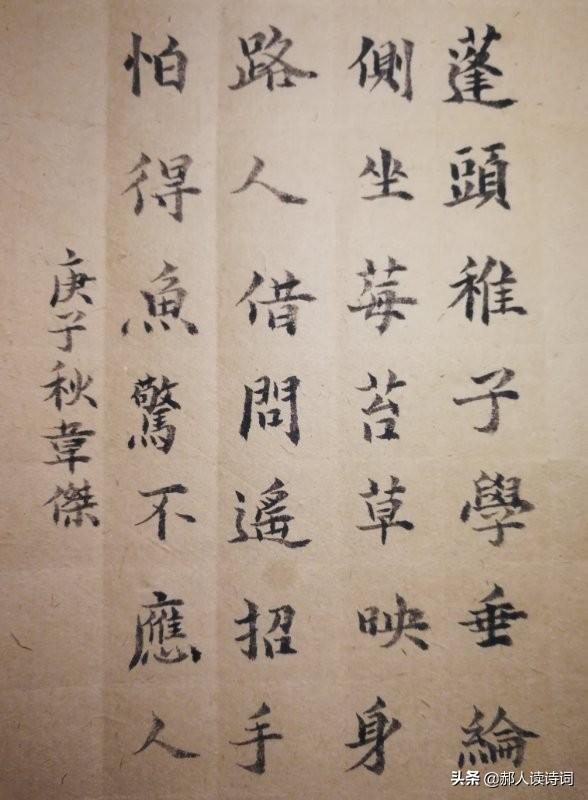 蓬頭稚子學垂綸
側坐莓苔草映身
路人借問遙招手
怕得魚驚不應人
庚子秋韋傑
头条 @郝人读诗词